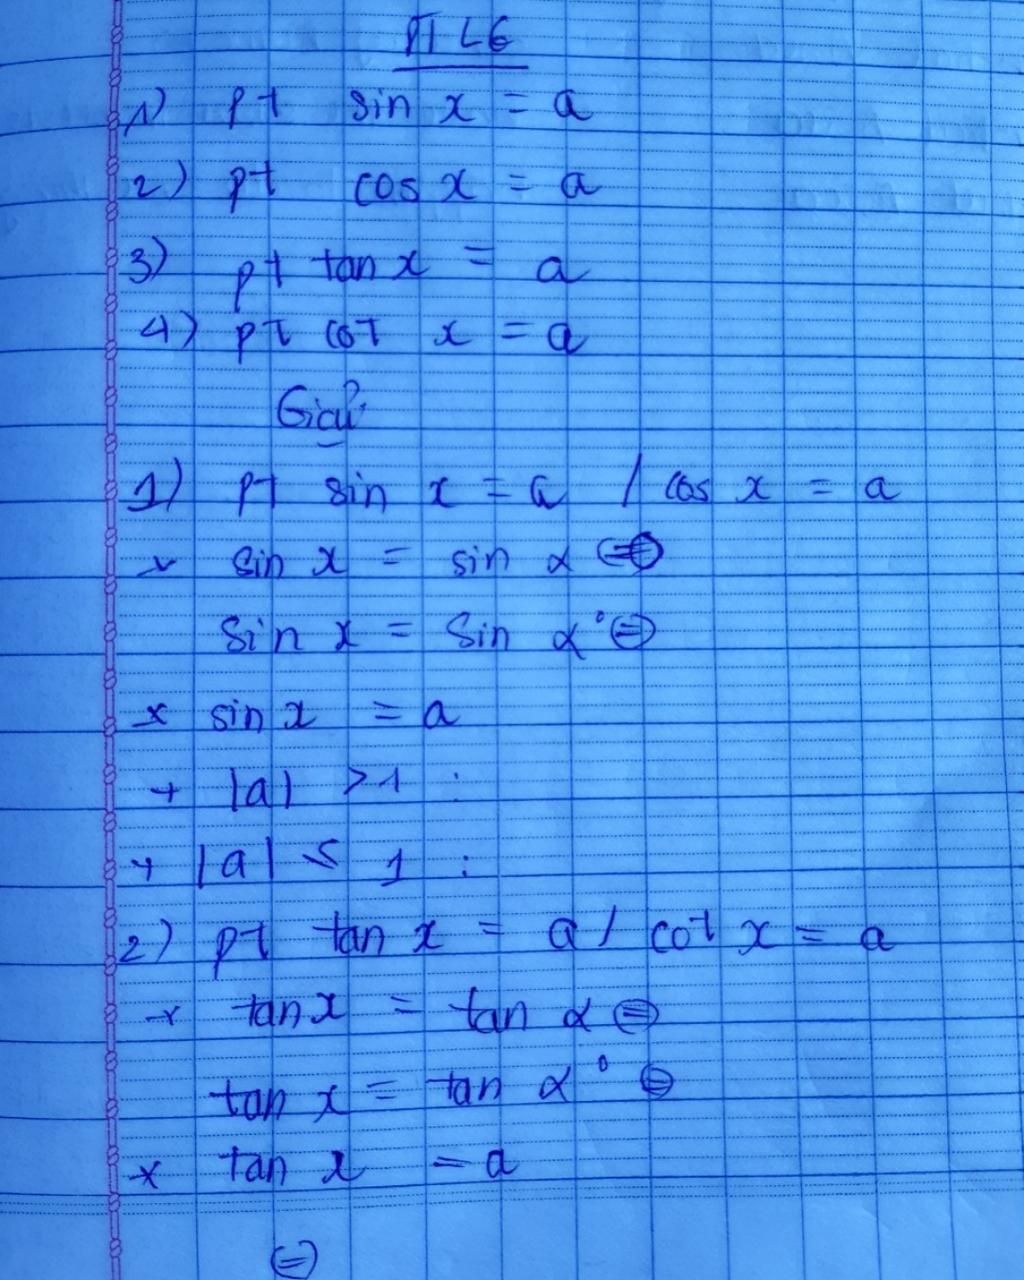 PTLG
1) pt sin x = a
2) pt cos x = a
3) pt tan x = a
4) pt cot x = a
Giải
1) pt sin x = a / cos x = a
* sin x = sin α ⇔
sin x = sin α° ⇔
* sin x = a
+ |a| > 1 :
+ |a| ≤ 1 :
2) pt tan x = a / cot x = a
* tan x = tan α ⇔
tan x = tan α° ⇔
* tan x = a
⇔